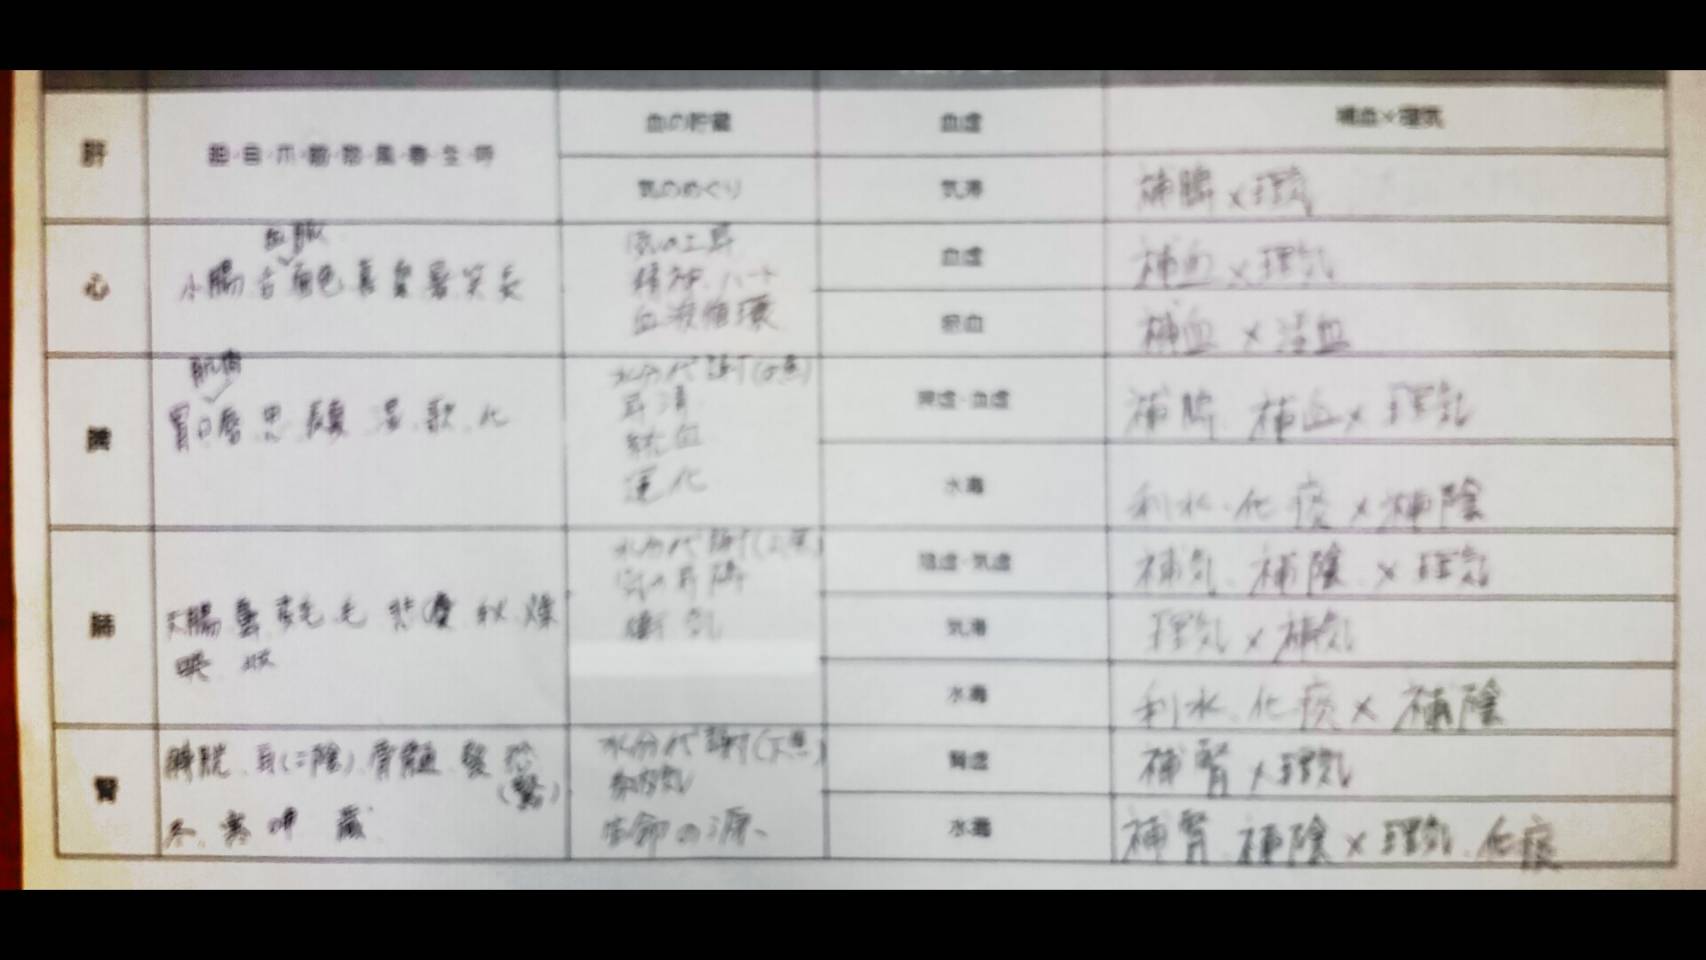 肝
胆・目・爪・筋・怒・風・春・生・呼
血の貯蔵
血虚
補血×理気
気のめぐり
気滞
補脾×理気
心
血脈
小腸 舌 顔色 喜 夏 暑 笑 長
気の上昇
精神、ハート
血液循環
血虚
補血×理気
瘀血
補血×活血
脾
肌肉
胃 口唇 思 長夏 湿 歌 化
水分代謝
昇清
統血
運化
脾虚・血虚
補脾、補血×理気
水毒
利水、化痰×補陰
肺
大腸 鼻 毛 悲 憂 秋 燥
哭 収
水分代謝(上焦)
気の昇降
衛気
陰虚・気虚
補気、補陰×理気
気滞
理気×補気
水毒
利水、化痰×補陰
腎
膀胱、耳(二陰)、骨髄、髪 恐
(驚)
冬、寒 呻 蔵
水分代謝(下焦)
納気
生命の源、
腎虚
補腎×理気
水毒
補腎、補陰×理気、化痰